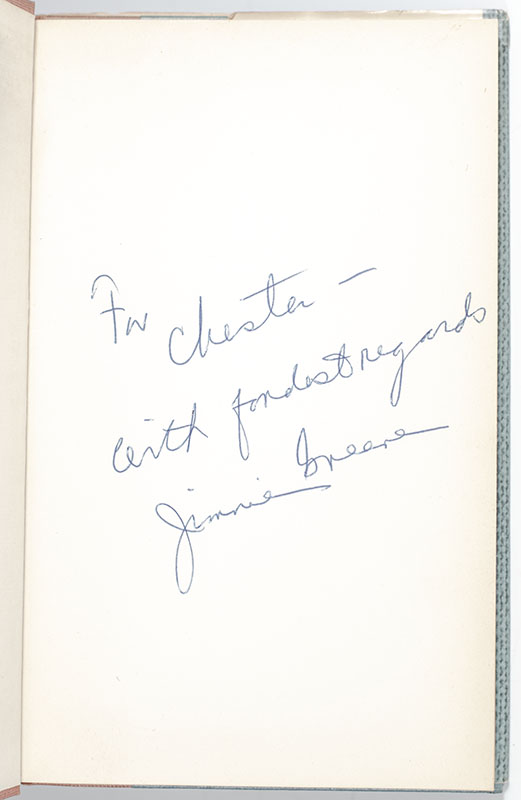 For Chester —
with fondest regards
Jimmie Greene